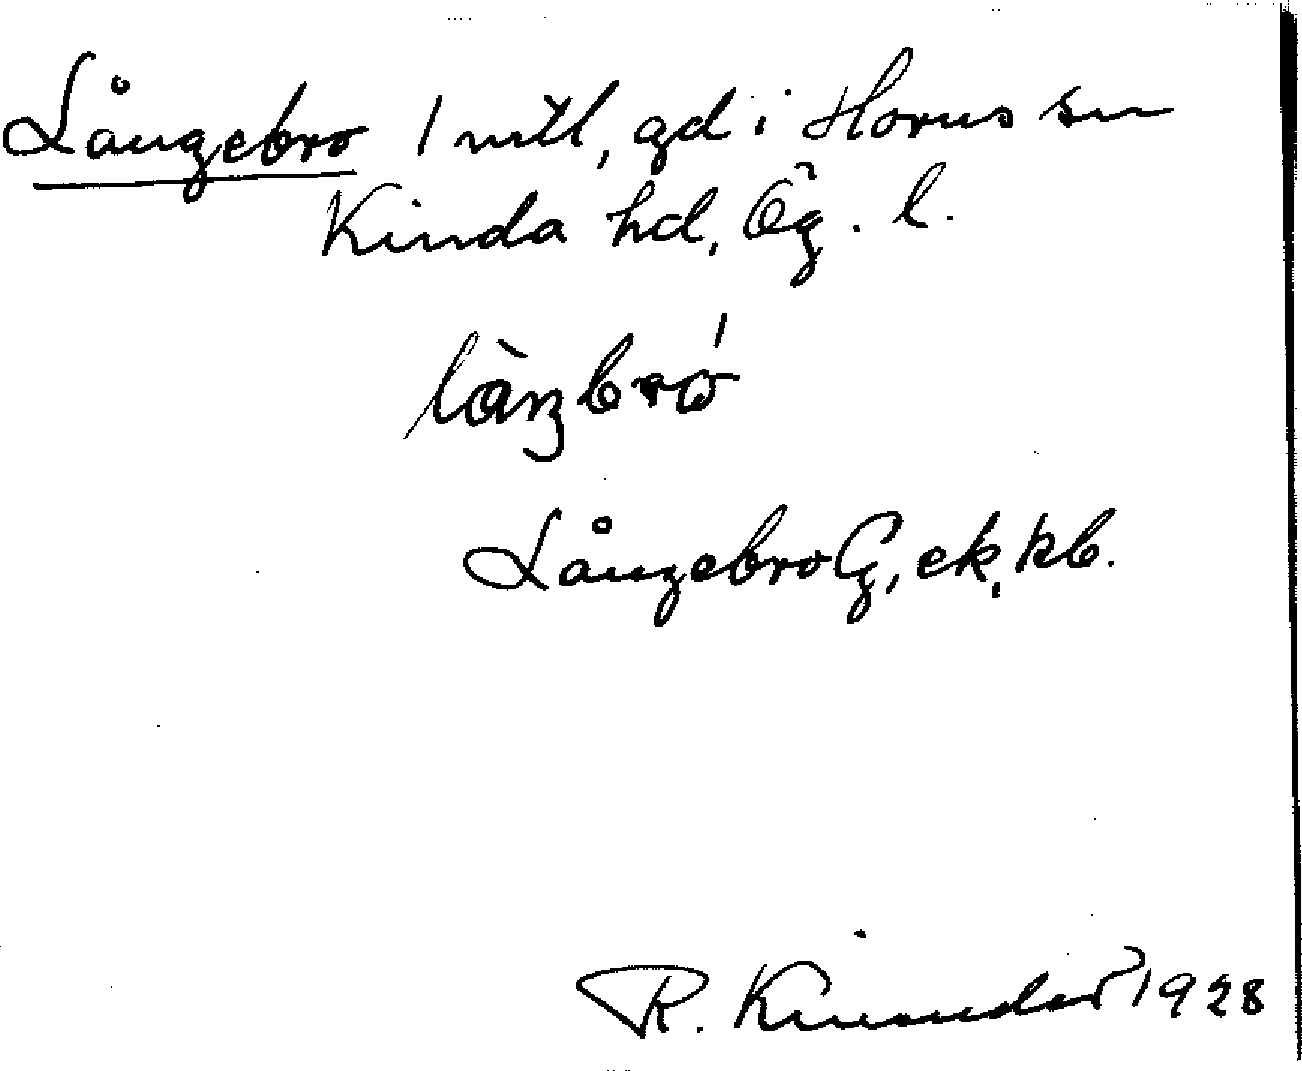 Långebro 1 mtl, gd i Horns sn
Kinda hd, Ög. l.
Långebro G, ek, kb.
R. Kinander 1928